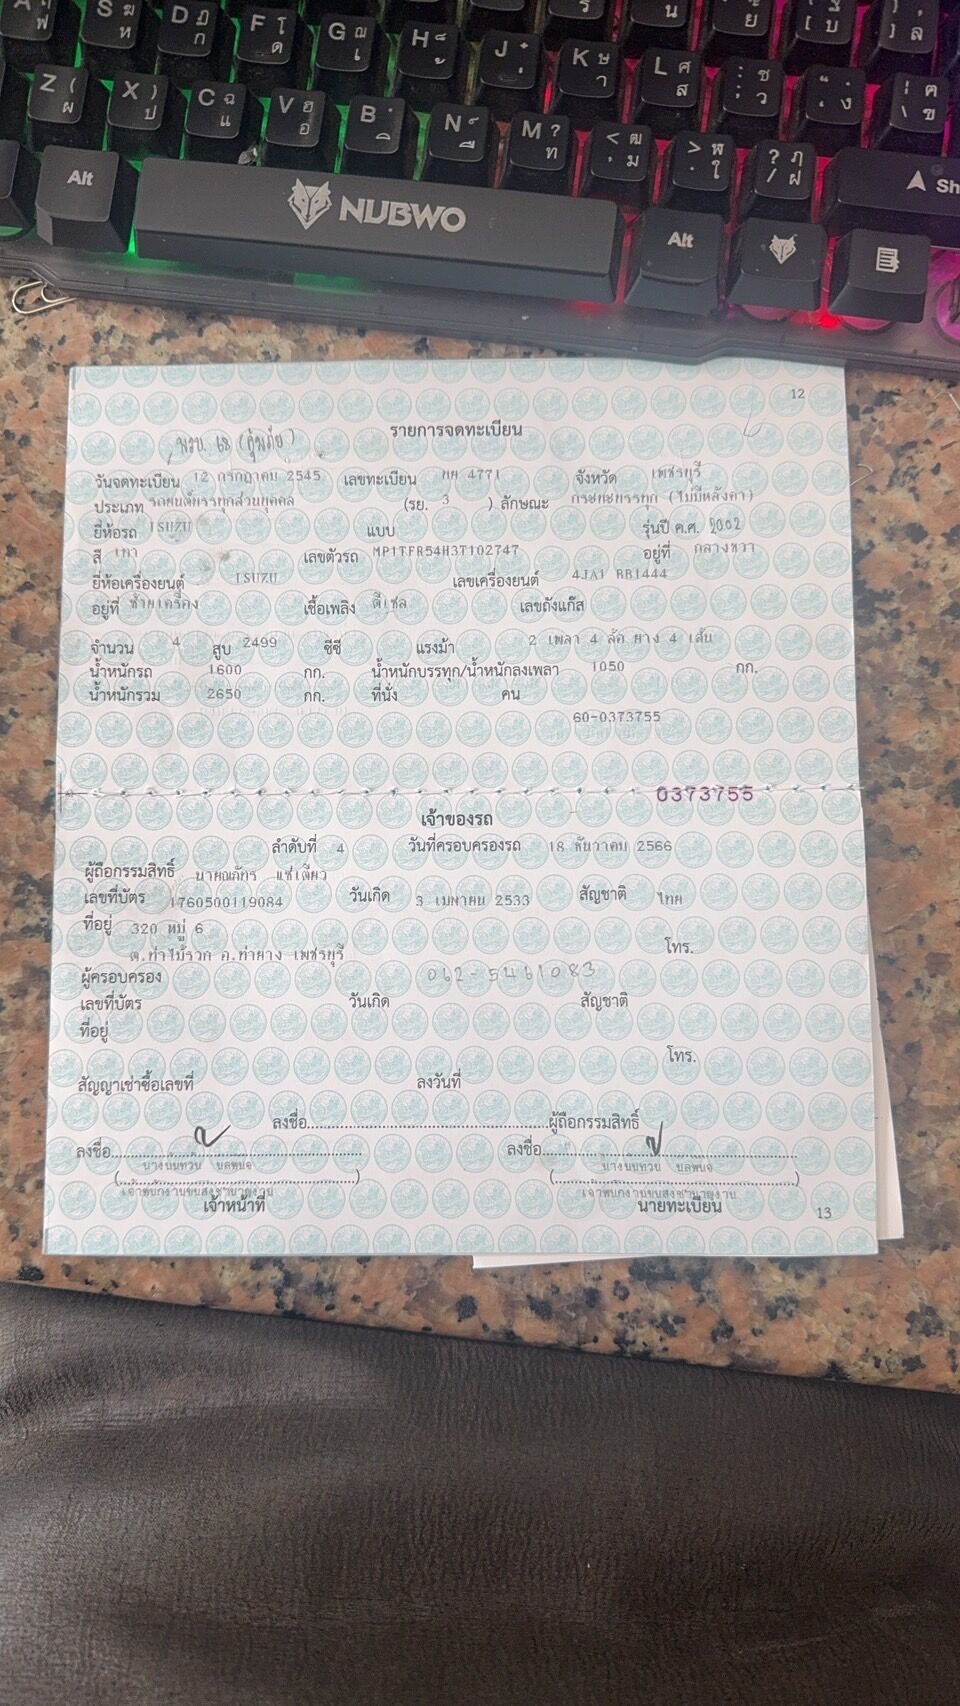 NUBWO
Alt
Alt
12
รายการจดทะเบียน
วันจดทะเบียน 12 กรกฎาคม 2545 เลขทะเบียน 4771 จังหวัด เพชรบุรี
ประเภท รถยนต์บรรทุกส่วนบุคคล (รย. 3 ) ลักษณะ กระบะบรรทุก (ไม่มีหลังคา)
ยี่ห้อรถ ISUZU แบบ รุ่นปี ค.ศ. 2002
สี เทา เลขตัวรถ MP1TFR54H3T102747 อยู่ที่ กลางขวา
ยี่ห้อเครื่องยนต์ ISUZU เลขเครื่องยนต์ 4JA1 BB1444
อยู่ที่ ซ้ายเครื่อง เชื้อเพลิง ดีเซล เลขถังแก๊ส
จำนวน 4 สูบ 2499 ซีซี แรงม้า 2 เพลา 4 ล้อ ยาง 4 เส้น
น้ำหนักรถ 1600 กก. น้ำหนักบรรทุก/น้ำหนักลงเพลา 1050 กก.
น้ำหนักรวม 2650 กก. ที่นั่ง คน
60-0373755
0373755
เจ้าของรถ
ลำดับที่ 4 วันที่ครอบครองรถ 18 ธันวาคม 2566
ผู้ถือกรรมสิทธิ์ นายณภัทร แซ่เตียว
เลขที่บัตร 1760500119084 วันเกิด 3 เมษายน 2533 สัญชาติ ไทย
ที่อยู่ 320 หมู่ 6
ต.ท่าไม้รวก อ.ท่ายาง เพชรบุรี โทร.
ผู้ครอบครอง 062-5461083
เลขที่บัตร วันเกิด สัญชาติ
ที่อยู่
โทร.
สัญญาเช่าซื้อเลขที่ ลงวันที่
ลงชื่อ ผู้ถือกรรมสิทธิ์
ลงชื่อ ลงชื่อ
เจ้าพนักงานขนส่งชำนาญงาน เจ้าพนักงานขนส่งชำนาญงาน
เจ้าหน้าที่ นายทะเบียน
13